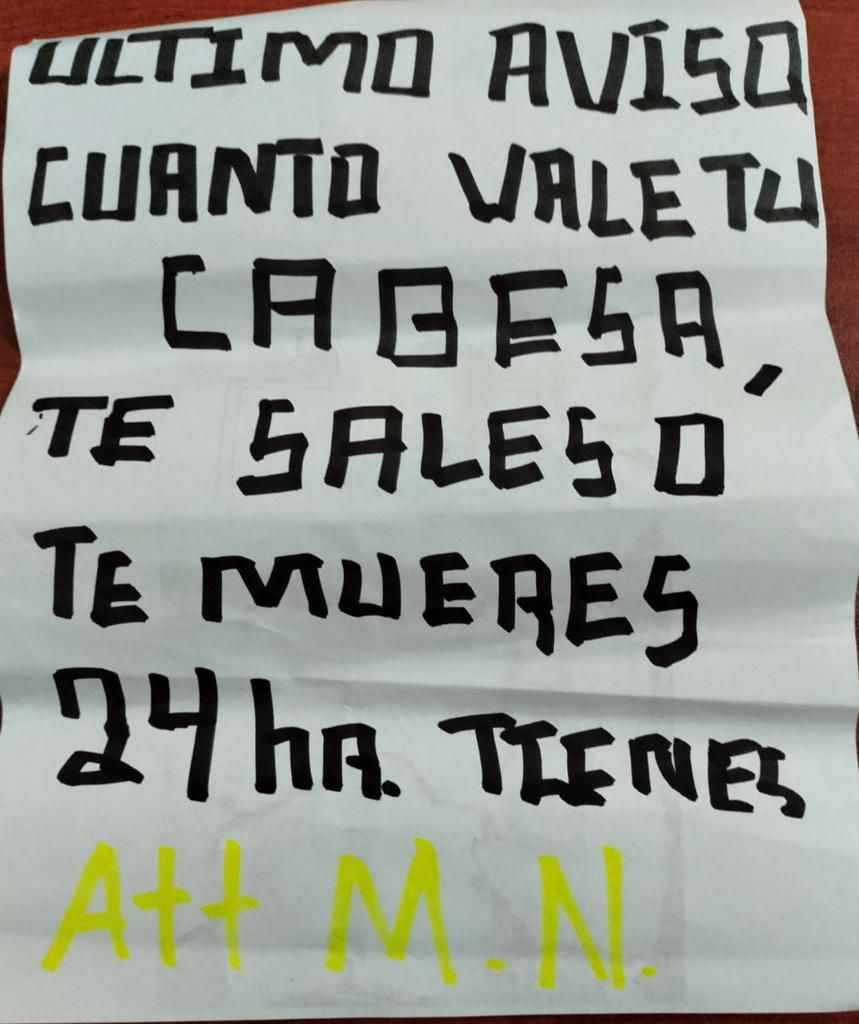 ULTIMO AVISO
CUANTO VALE TU
CABESA,
TE SALES O
TE MUERES
24 hR. TIENES
Att M.N.